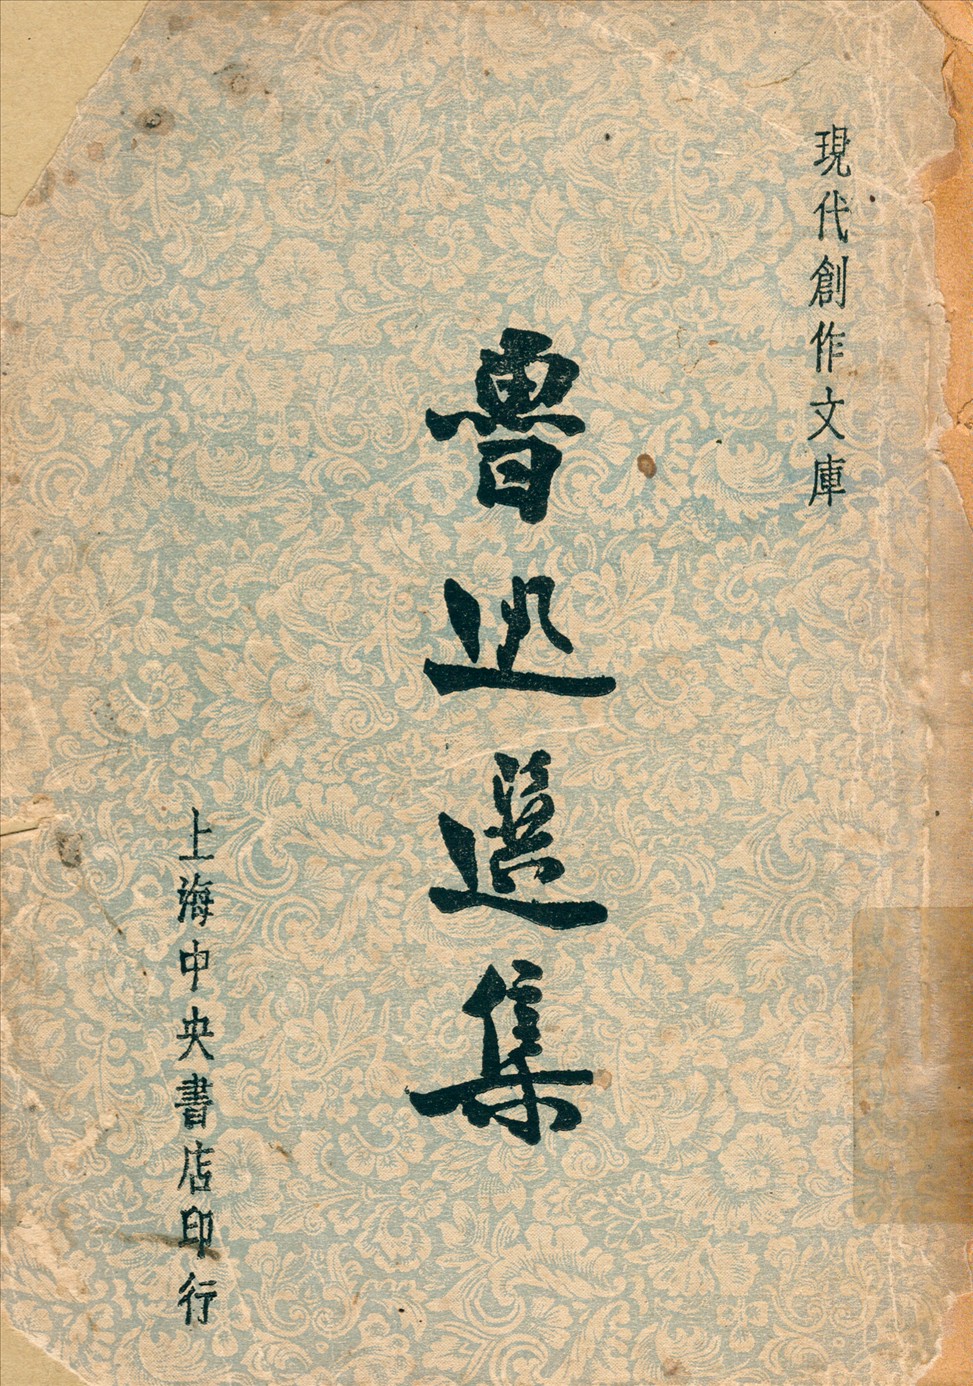 現代創作文庫
魯迅選集
上海中央書店印行